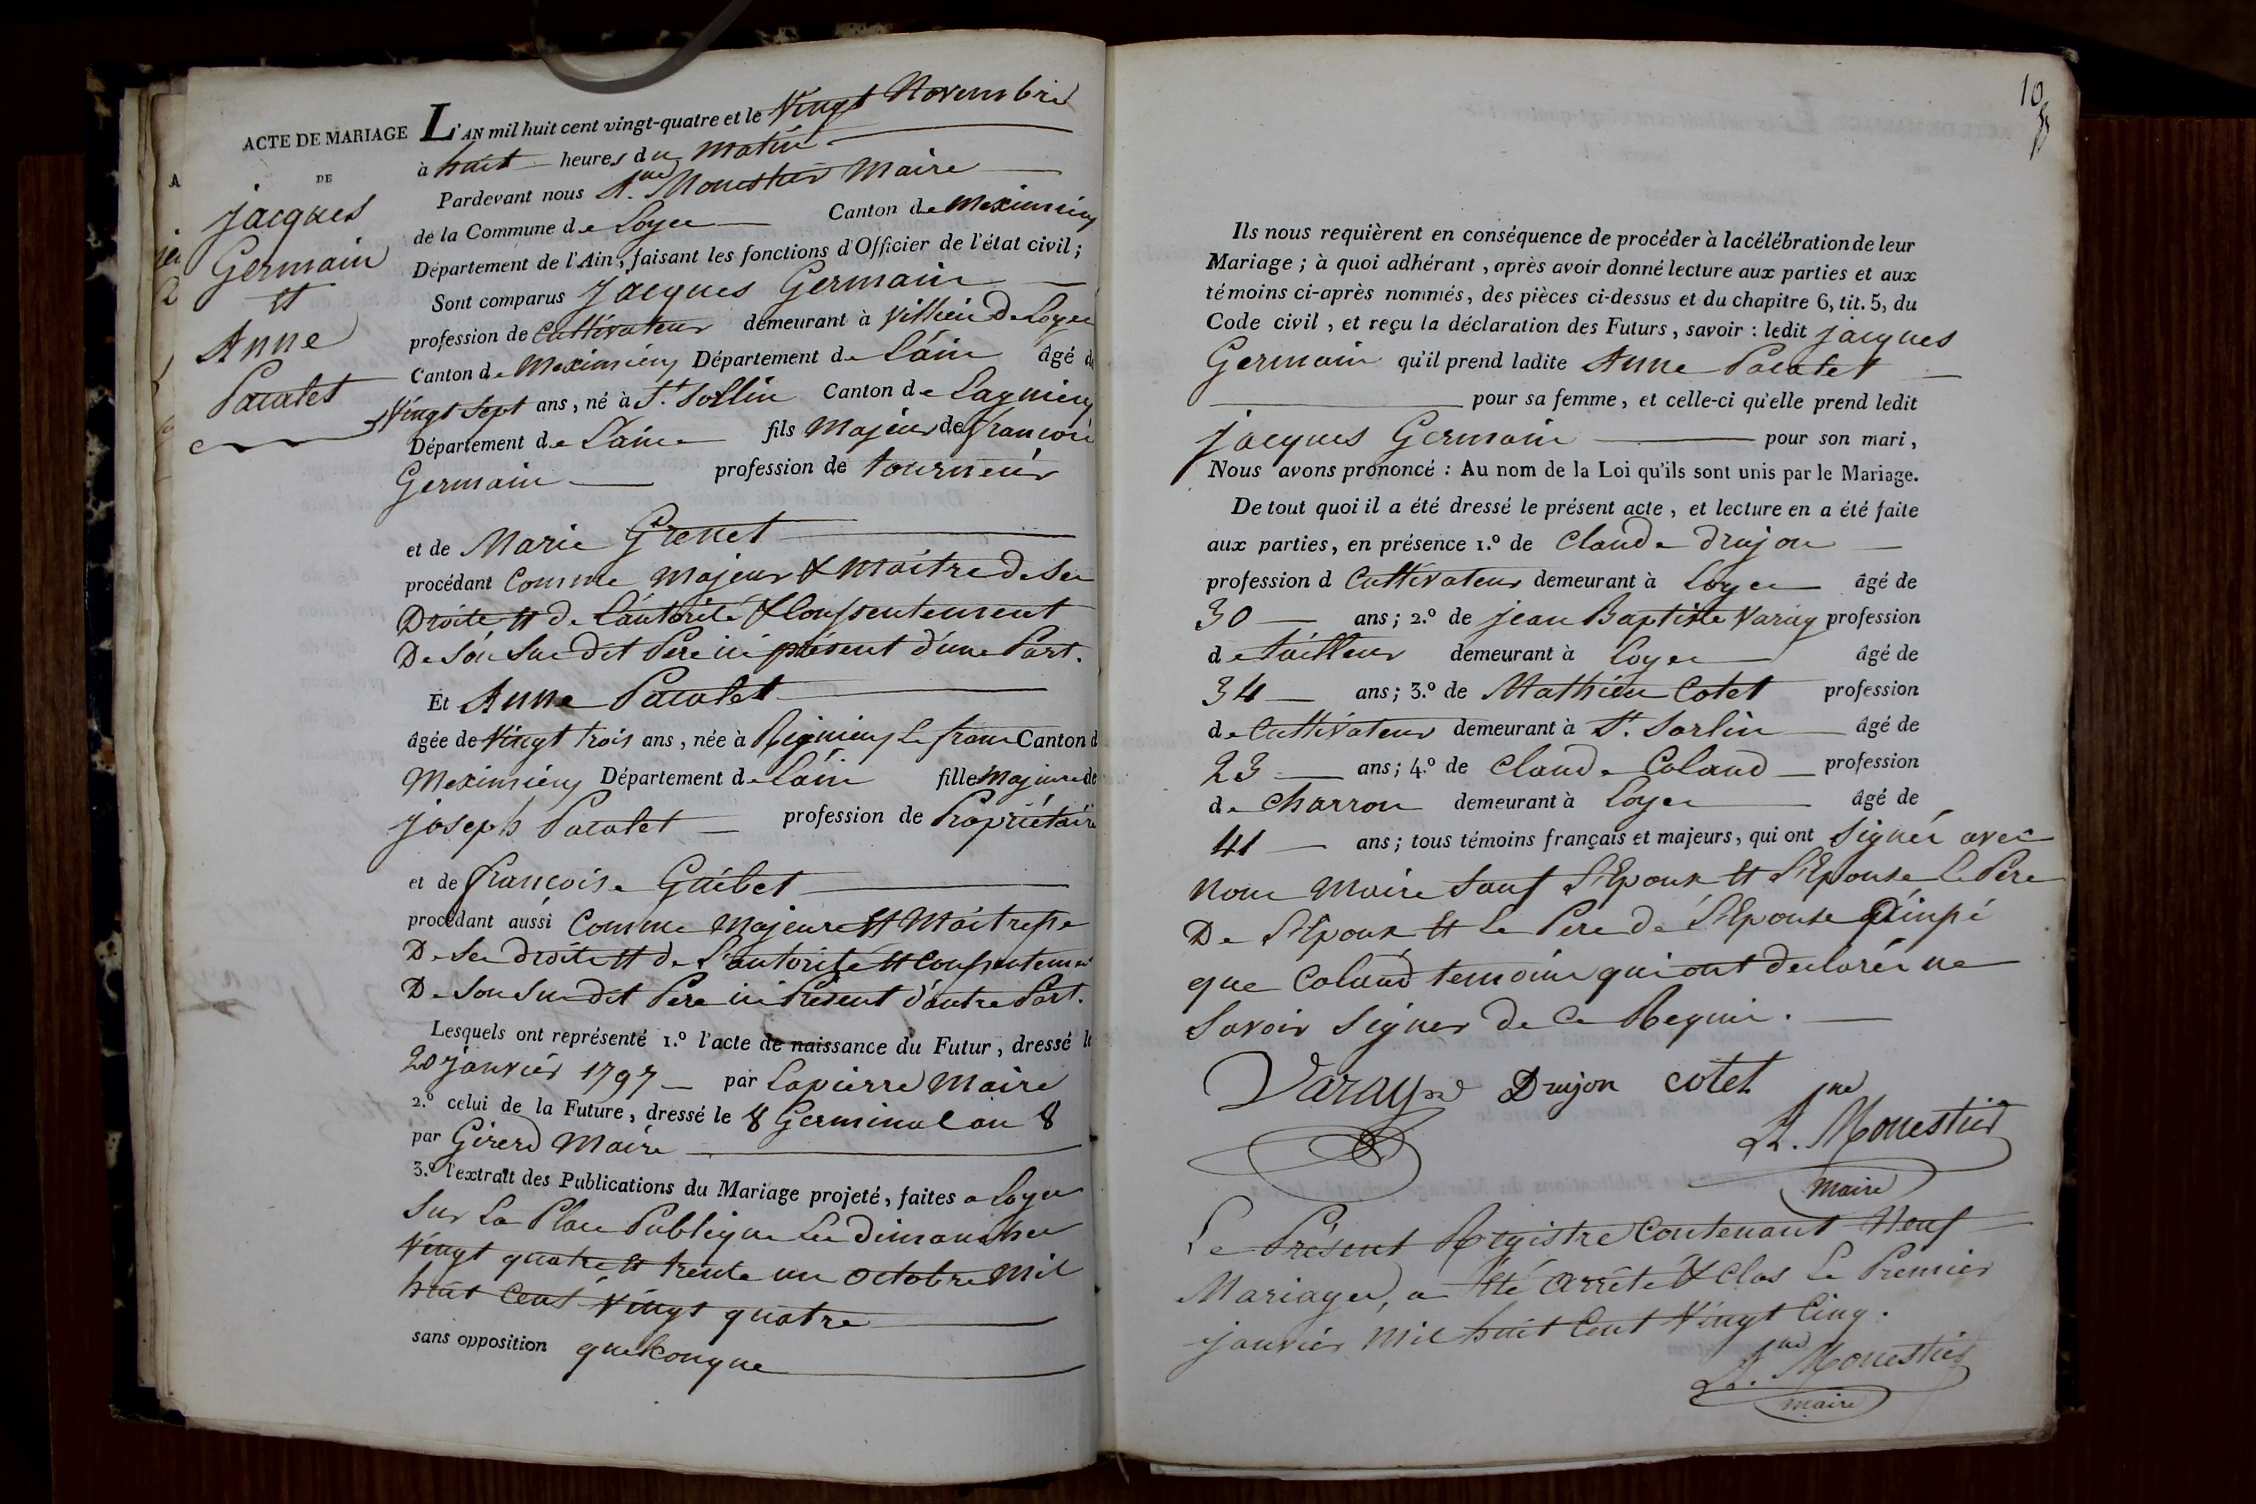 ACTE DE MARIAGE
DE
jacques
Germain
et
Anne
Pacalet
L'AN mil huit cent vingt-quatre et le Vingt Novembre
à huit heures du matin
Pardevant nous Mouestier Maire
de la Commune de Loyes Canton de Meximieux
Département de l'Ain, faisant les fonctions d'Officier de l'état civil;
Sont comparus jacques Germain
profession de Cultivateur demeurant à Villieu De Loyes
Canton de Meximieux Département de L'ain âgé de
Vingt Sept ans, né à St. Sorlin Canton de Lagnieu
Département de L'ain fils Majeur de francois
Germain profession de tourneur
et de Marie Grenet
procédant Comme Majeur & Maitre De Ses
Droits et de L'autorité & Conssentement
De Son Sus dit Pere ici présent d'une Part.
Et Anne Pacalet
âgée de Vingt trois ans, née à Rignieux Le franc Canton d
Meximieux Département de L'ain fille Majeure de
joseph Pacalet profession de Propriétaire
et de francoise Guibet
procédant aussi Comme Majeure et Maitresse
De Ses droits et de L'autorité et Conssentement
De Son Sus dit Pere ici Présent d'autre Part.
Lesquels ont représenté 1.º l'acte de naissance du Futur, dressé le
20 janvier 1797 par Lapierre Maire
2.º celui de la Future, dressé le 8 Germinal an 8
par Girerd Maire
3.º l'extrait des Publications du Mariage projeté, faites a Loyes
Sur La Place Publique Les Dimanches
Vingt quatre et trente un octobre Mil
huit Cent Vingt quatre
sans opposition quelconque
10
Ils nous requièrent en conséquence de procéder à la célébration de leur
Mariage; à quoi adhérant, après avoir donné lecture aux parties et aux
témoins ci-après nommés, des pièces ci-dessus et du chapitre 6, tit. 5, du
Code civil, et reçu la déclaration des Futurs, savoir: ledit jacques
Germain qu'il prend ladite Anne Pacalet
pour sa femme, et celle-ci qu'elle prend ledit
jacques Germain pour son mari,
Nous avons prononcé: Au nom de la Loi qu'ils sont unis par le Mariage.
De tout quoi il a été dressé le présent acte, et lecture en a été faite
aux parties, en présence 1.º de Claude Drujon
profession d Cultivateur demeurant à Loyes âgé de
30 ans; 2.º de jean Baptiste Varay profession
de tailleur demeurant à Loyes âgé de
34 ans; 3.º de Mathieu Cotet profession
de Cultivateur demeurant à St. Sorlin âgé de
23 ans; 4.º de Claude Coland profession
de Charron demeurant à Loyes âgé de
41 ans; tous témoins français et majeurs, qui ont Signés avec
Nous Maire Sauf L'Epoux et L'Epouse Le Pere
De L'Epoux et Le Pere De L'Epouse Q'insi
que Coland temoins qui ont declarés ne
Savoir Signer De Ce Requis.
Varay Drujon cotet
Mouestier
Maire
Le Présent Registre Contenant Neuf
Mariages, a été arrêté & clos Le Premier
janvier Mil huit Cent Vingt Cinq.
Mouestier
maire